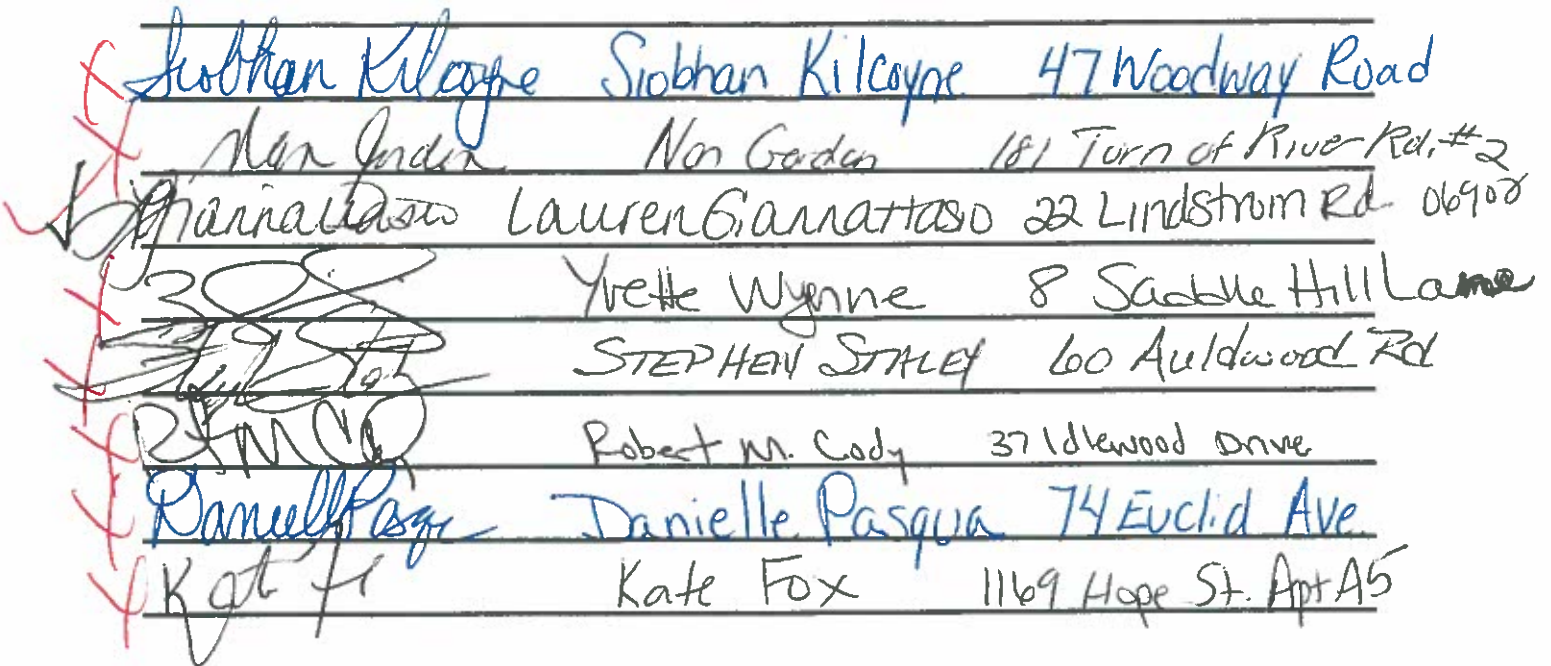 Siobhan Kilcoyne Siobhan Kilcoyne 47 Woodway Road
Nan Gordon 181 Turn of River Rd. #2
Giannattasio Lauren Giannattasio 22 Lindstrom Rd 06902
Yvette Wynne 8 Saddle Hill Lane
STEPHEN STALEY 60 Auldwood Rd
Robert M. Cody 37 Idlewood Drive
Danielle Pasqua Danielle Pasqua 74 Euclid Ave.
Kate Fox 1169 Hope St. Apt A5